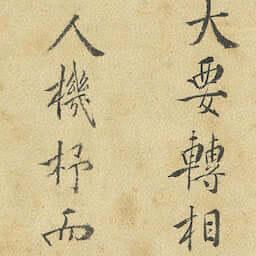 大要轉相
人機杼而